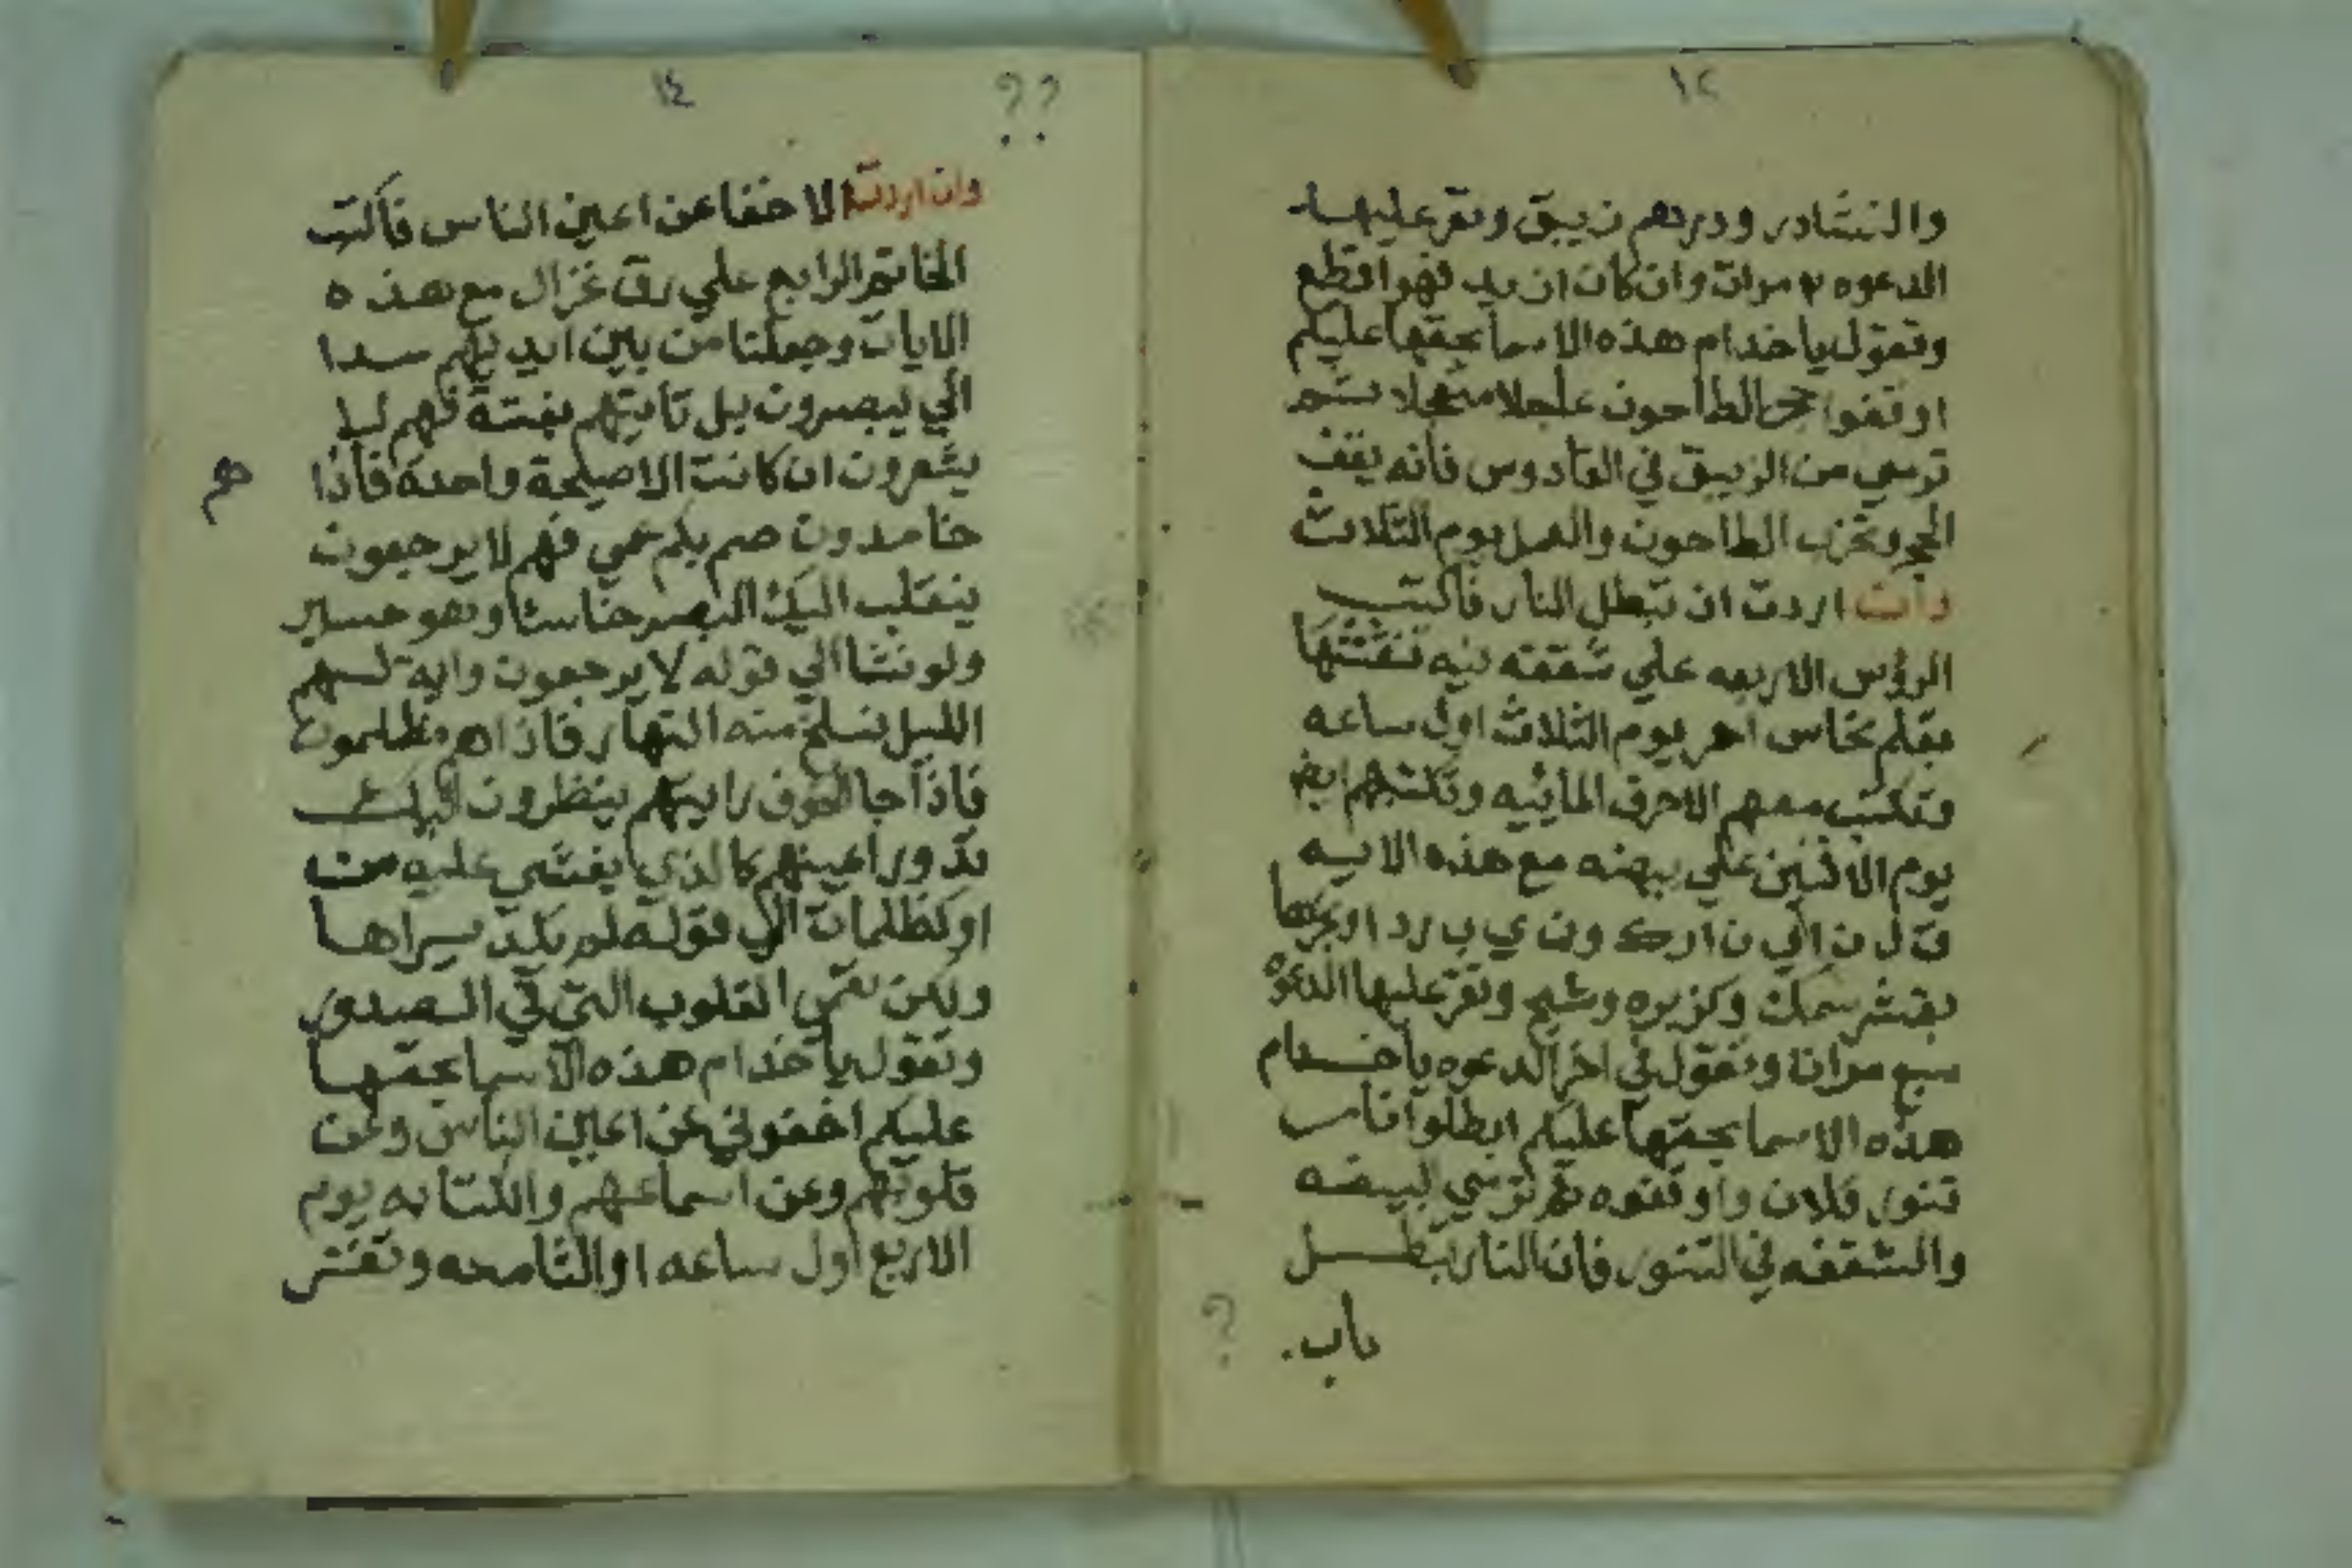 ١٢
والنشادر ودرهم زيبق وتقر عليها
الدعوه ٧ مرات وان كان ازيد فهو اقطع
وتقول يا خدام هذه الاسما بحقها عليكم
اوقفوا حجر الطاحون عاجلا
ترمي من الزيبق في القادوس فانه يقف
الحجر وتخرب الطاحون والعمل يوم الثلاث
وان اردت ان تبطل النار فاكتب
الرؤس الاربعه علي شقفه نيه تنقشها
بقلم نحاس احمر يوم الثلاث اول ساعه
وتكتب معهم الاحرف المائيه وتكتبهم ايض
يوم الاثنين علي بيضه مع هذه الايه
ق ل ن ا ي ن ا ر ك و ن ي ب ر د ا وبخرها
بقشر سمك وكزبره وشيح وتقر عليها الدعوه
سبع مرات وتقول في اخر الدعوه يا خدام
هذه الاسما بحقها عليكم ابطلوا نار
تنور فلان واوقفوه ثم ترمي البيضه
والشقفه في التنور فان النار تبطل
باب.
?
١٤
??
وان اردت الاخفا عن اعين الناس فاكتب
الخاتم الرابع علي رق غزال مع هذه
الايات وجعلنا من بين ايديهم سدا
الي يبصرون بل تأتيهم بغتة فهم لا
يشعرون ان كانت الاصيحة واحدة فاذا
هم
خامدون صم بكم عمي فهم لا يرجعون
ينقلب اليك البصر خاسئا وهو حسير
ولو نشا الي قوله لا يرجعون واية لهم
الليل نسلخ منه النهار فاذاهم مظلمون
فاذا جا الخوف رايتهم ينظرون اليك
تدور اعينهم كالذي يغشي عليه من
اوكظلمات الي قوله لم يكد يراها
ولكن تعمي القلوب التي في الصدور
وتقول يا خدام هذه الاسما بحقها
عليكم اخفوني عن اعين الناس وعن
قلوبهم وعن اسماعهم والكتابه يوم
الاربع اول ساعه او الثامنه وتقشر